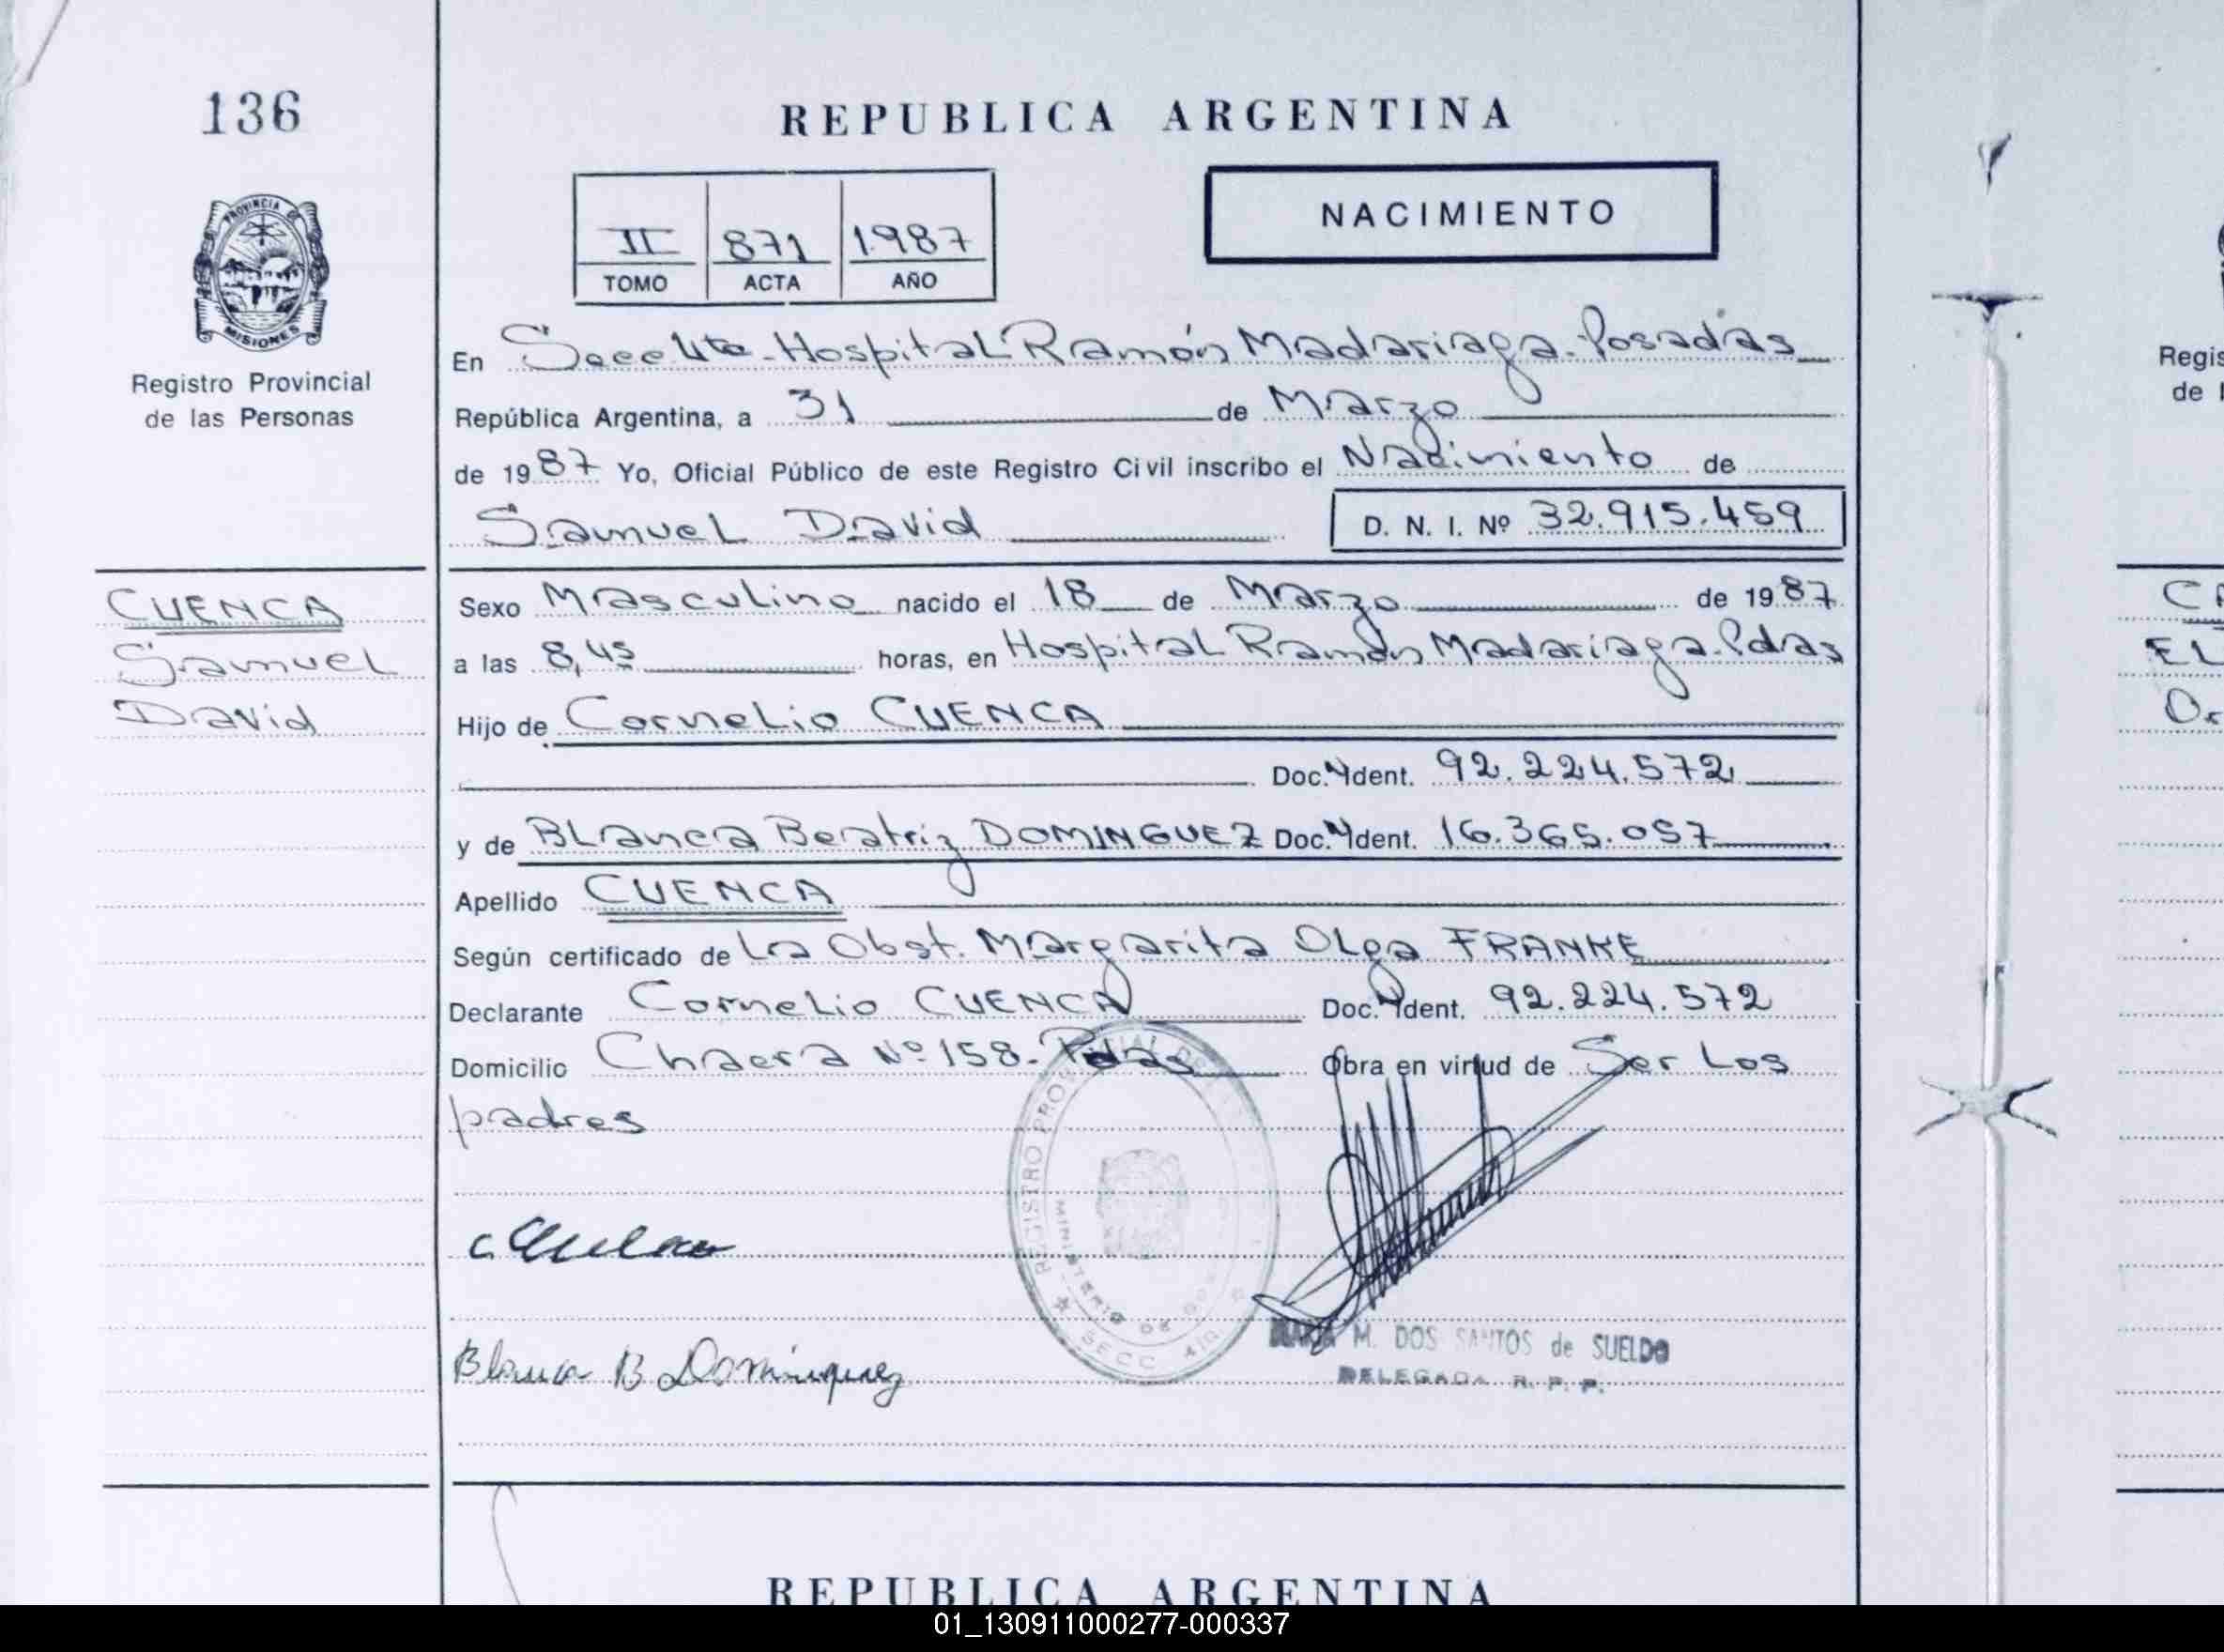 136
PROVINCIA DE
MISIONES
Registro Provincial
de las Personas
CUENCA
Samuel
David
REPUBLICA ARGENTINA
II 871 1987
TOMO ACTA AÑO
NACIMIENTO
En Secc 4ta - Hospital Ramón Madariaga - Posadas
República Argentina, a 31 de Marzo
de 1987 Yo, Oficial Público de este Registro Civil inscribo el Nacimiento de
Samuel David D. N. I. Nº 32.915.459
Sexo Masculino nacido el 18 de Marzo de 1987
a las 8,45 horas, en Hospital Ramón Madariaga. Pdas
Hijo de Cornelio CUENCA
Doc. Ident. 92.224.572
y de Blanca Beatriz DOMINGUEZ Doc. Ident. 16.365.057
Apellido CUENCA
Según certificado de La Obst. Margarita Olga FRANKE
Declarante Cornelio CUENCA Doc. Ident. 92.224.572
Domicilio Chacra Nº 158 - Pdas Obra en virtud de Ser Los
padres
REGISTRO PROVINCIAL DE
MINISTERIO DE GO
SECC. 4ta
Blanca B Dominguez
M. DOS SANTOS de SUELDO
DELEGADA R. P. P.
REPUBLICA ARGENTINA
Regis
de l
CA
EL
Or
01_130911000277-000337